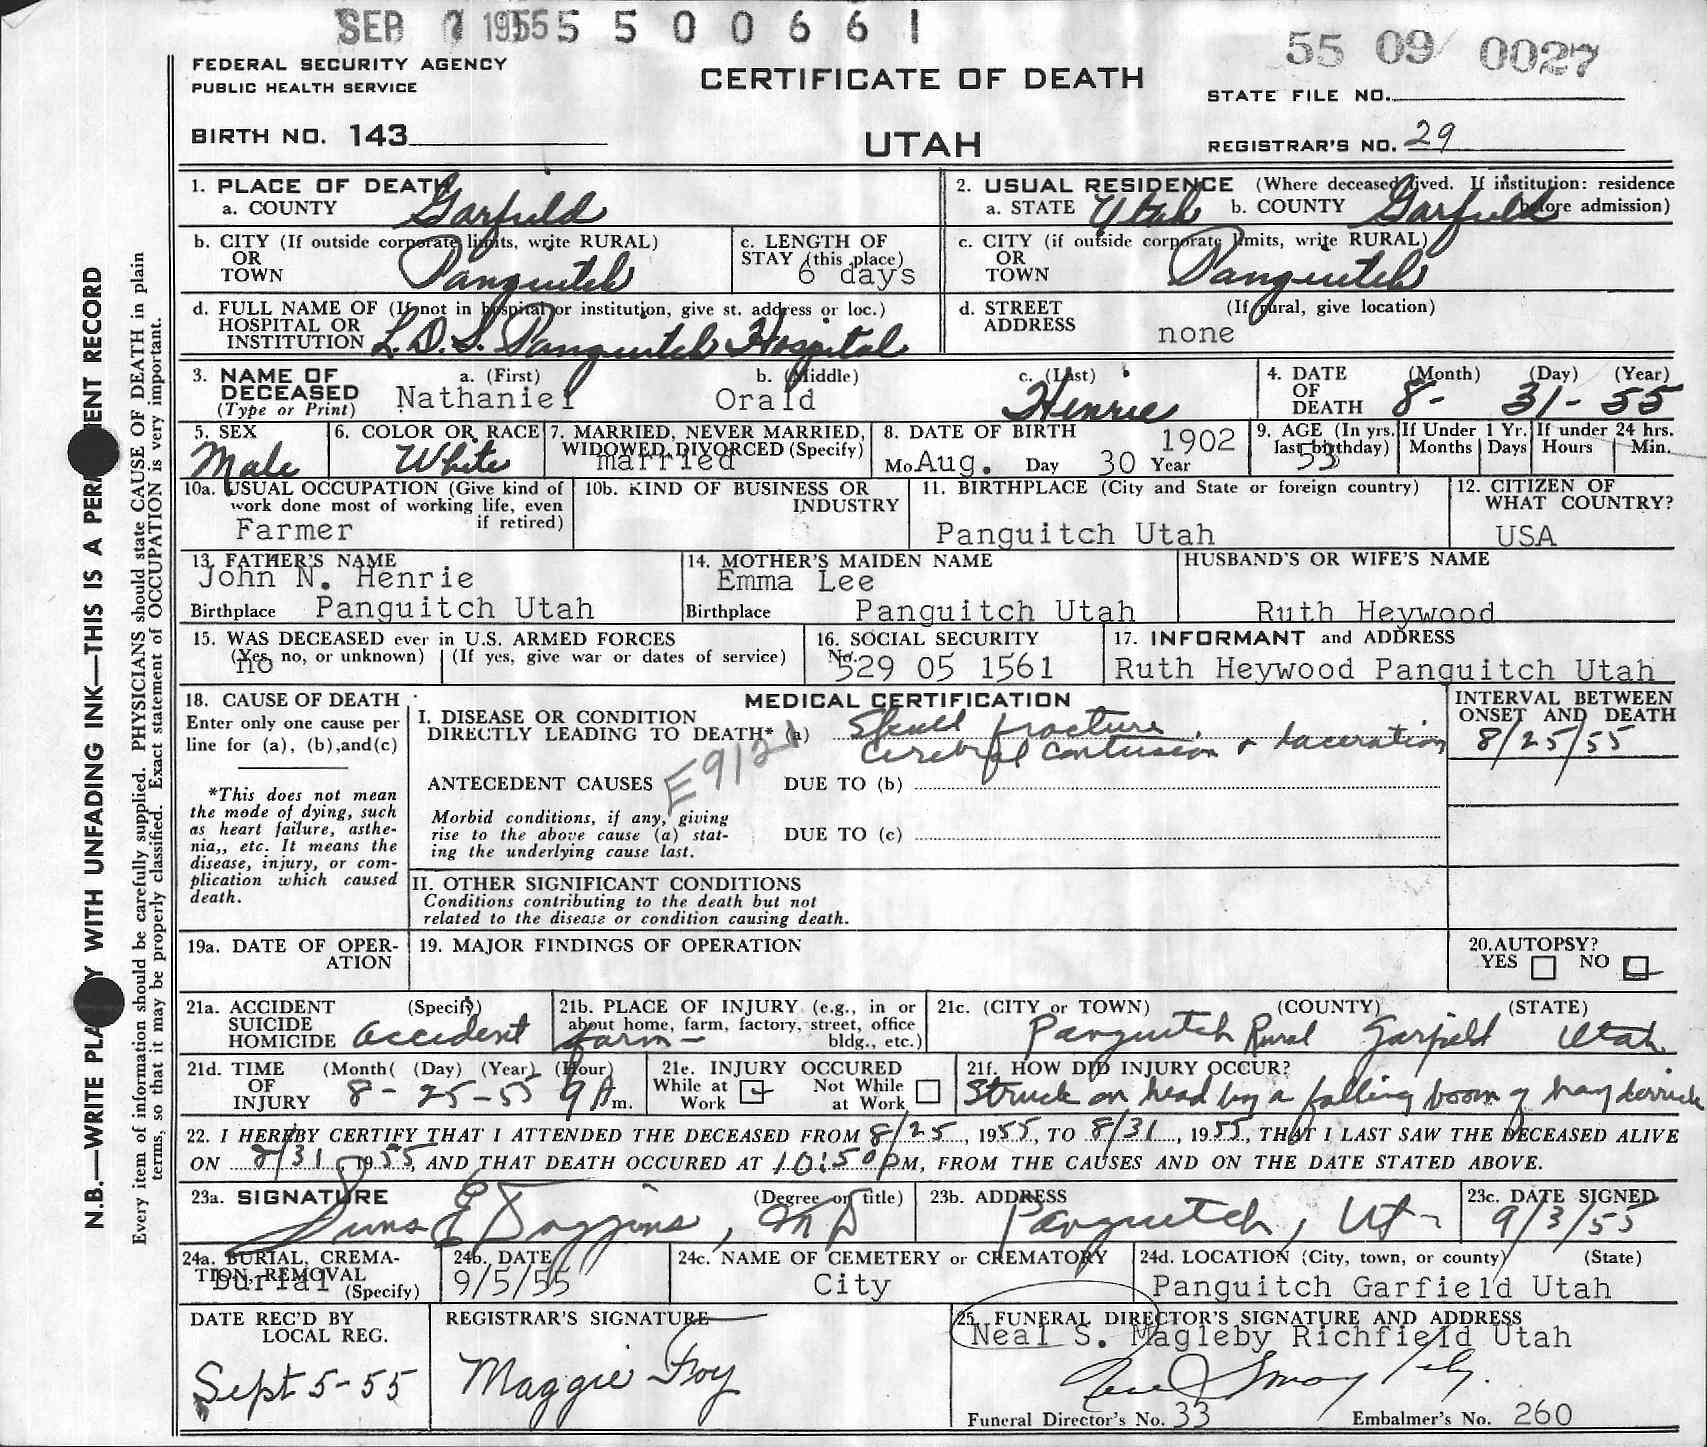 SEP 7 1955 5 5 0 0 6 6 1
55 09 0027
FEDERAL SECURITY AGENCY
PUBLIC HEALTH SERVICE
CERTIFICATE OF DEATH
STATE FILE NO.
BIRTH NO. 143
UTAH
REGISTRAR'S NO. 29
N.B.—WRITE PLA Y WITH UNFADING INK—THIS IS A PERM ENT RECORD
Every item of information should be carefully supplied. PHYSICIANS should state CAUSE OF DEATH in plain
terms, so that it may be properly classified. Exact statement of OCCUPATION is very important.
1. PLACE OF DEATH
a. COUNTY Garfield
2. USUAL RESIDENCE (Where deceased lived. If institution: residence
before admission)
a. STATE Utah b. COUNTY Garfield
b. CITY (If outside corporate limits, write RURAL)
OR
TOWN Panguitch
c. LENGTH OF
STAY (this place)
6 days
c. CITY (if outside corporate limits, write RURAL)
OR
TOWN Panguitch
d. FULL NAME OF (If not in hospital or institution, give st. address or loc.)
HOSPITAL OR
INSTITUTION L.D.S. Panguitch Hospital
d. STREET (If rural, give location)
ADDRESS none
3. NAME OF DECEASED
(Type or Print)
a. (First) b. (Middle) c. (Last)
Nathaniel Orald Henrie
4. DATE OF DEATH
(Month) (Day) (Year)
8- 31- 55
5. SEX
Male
6. COLOR OR RACE
White
7. MARRIED, NEVER MARRIED,
WIDOWED, DIVORCED (Specify)
married
8. DATE OF BIRTH 1902
Mo Aug. Day 30 Year
9. AGE (In yrs. last birthday)
53
If Under 1 Yr.
Months Days
If under 24 hrs.
Hours Min.
10a. USUAL OCCUPATION (Give kind of
work done most of working life, even
if retired)
Farmer
10b. KIND OF BUSINESS OR
INDUSTRY
11. BIRTHPLACE (City and State or foreign country)
Panguitch Utah
12. CITIZEN OF
WHAT COUNTRY?
USA
13. FATHER'S NAME
John N. Henrie
Birthplace Panguitch Utah
14. MOTHER'S MAIDEN NAME
Emma Lee
Birthplace Panguitch Utah
HUSBAND'S OR WIFE'S NAME
Ruth Heywood
15. WAS DECEASED ever in U.S. ARMED FORCES
(Yes, no, or unknown) (If yes, give war or dates of service)
no
16. SOCIAL SECURITY
No. 529 05 1561
17. INFORMANT and ADDRESS
Ruth Heywood Panguitch Utah
18. CAUSE OF DEATH
Enter only one cause per
line for (a), (b),and(c)
*This does not mean
the mode of dying, such
as heart failure, asthe-
nia,, etc. It means the
disease, injury, or com-
plication which caused
death.
MEDICAL CERTIFICATION
I. DISEASE OR CONDITION
DIRECTLY LEADING TO DEATH* (a) Skull fracture,
Cerebral contusion & laceration
ANTECEDENT CAUSES E912 DUE TO (b)
Morbid conditions, if any, giving
rise to the above cause (a) stat-
ing the underlying cause last.
DUE TO (c)
INTERVAL BETWEEN
ONSET AND DEATH
8/25/55
II. OTHER SIGNIFICANT CONDITIONS
Conditions contributing to the death but not
related to the disease or condition causing death.
19a. DATE OF OPER-
ATION
19. MAJOR FINDINGS OF OPERATION
20.AUTOPSY?
YES NO
21a. ACCIDENT (Specify)
SUICIDE
HOMICIDE accident
21b. PLACE OF INJURY (e.g., in or
about home, farm, factory, street, office
bldg., etc.)
farm-
21c. (CITY or TOWN) (COUNTY) (STATE)
Panguitch Rural Garfield Utah
21d. TIME (Month( (Day) (Year) (Hour)
OF
INJURY 8 - 25 - 55 9 A m.
21e. INJURY OCCURED
While at Work Not While at Work
21f. HOW DID INJURY OCCUR?
Struck on head by a falling boom of hay derrick
22. I HEREBY CERTIFY THAT I ATTENDED THE DECEASED FROM 8/25, 1955, TO 8/31, 1955, THAT I LAST SAW THE DECEASED ALIVE
ON 8/31, 1955, AND THAT DEATH OCCURED AT 10:50PM, FROM THE CAUSES AND ON THE DATE STATED ABOVE.
23a. SIGNATURE (Degree or title)
Sims E Duggins, MD
23b. ADDRESS
Panguitch, Ut
23c. DATE SIGNED
9/3/55
24a. BURIAL, CREMA-
TION, REMOVAL
(Specify)
burial
24b. DATE
9/5/55
24c. NAME OF CEMETERY or CREMATORY
City
24d. LOCATION (City, town, or county) (State)
Panguitch Garfield Utah
DATE REC'D BY
LOCAL REG.
Sept 5-55
REGISTRAR'S SIGNATURE
Maggie Foy
25. FUNERAL DIRECTOR'S SIGNATURE AND ADDRESS
Neal S. Magleby Richfield Utah
Neal S Magleby.
Funeral Director's No. 33 Embalmer's No. 260